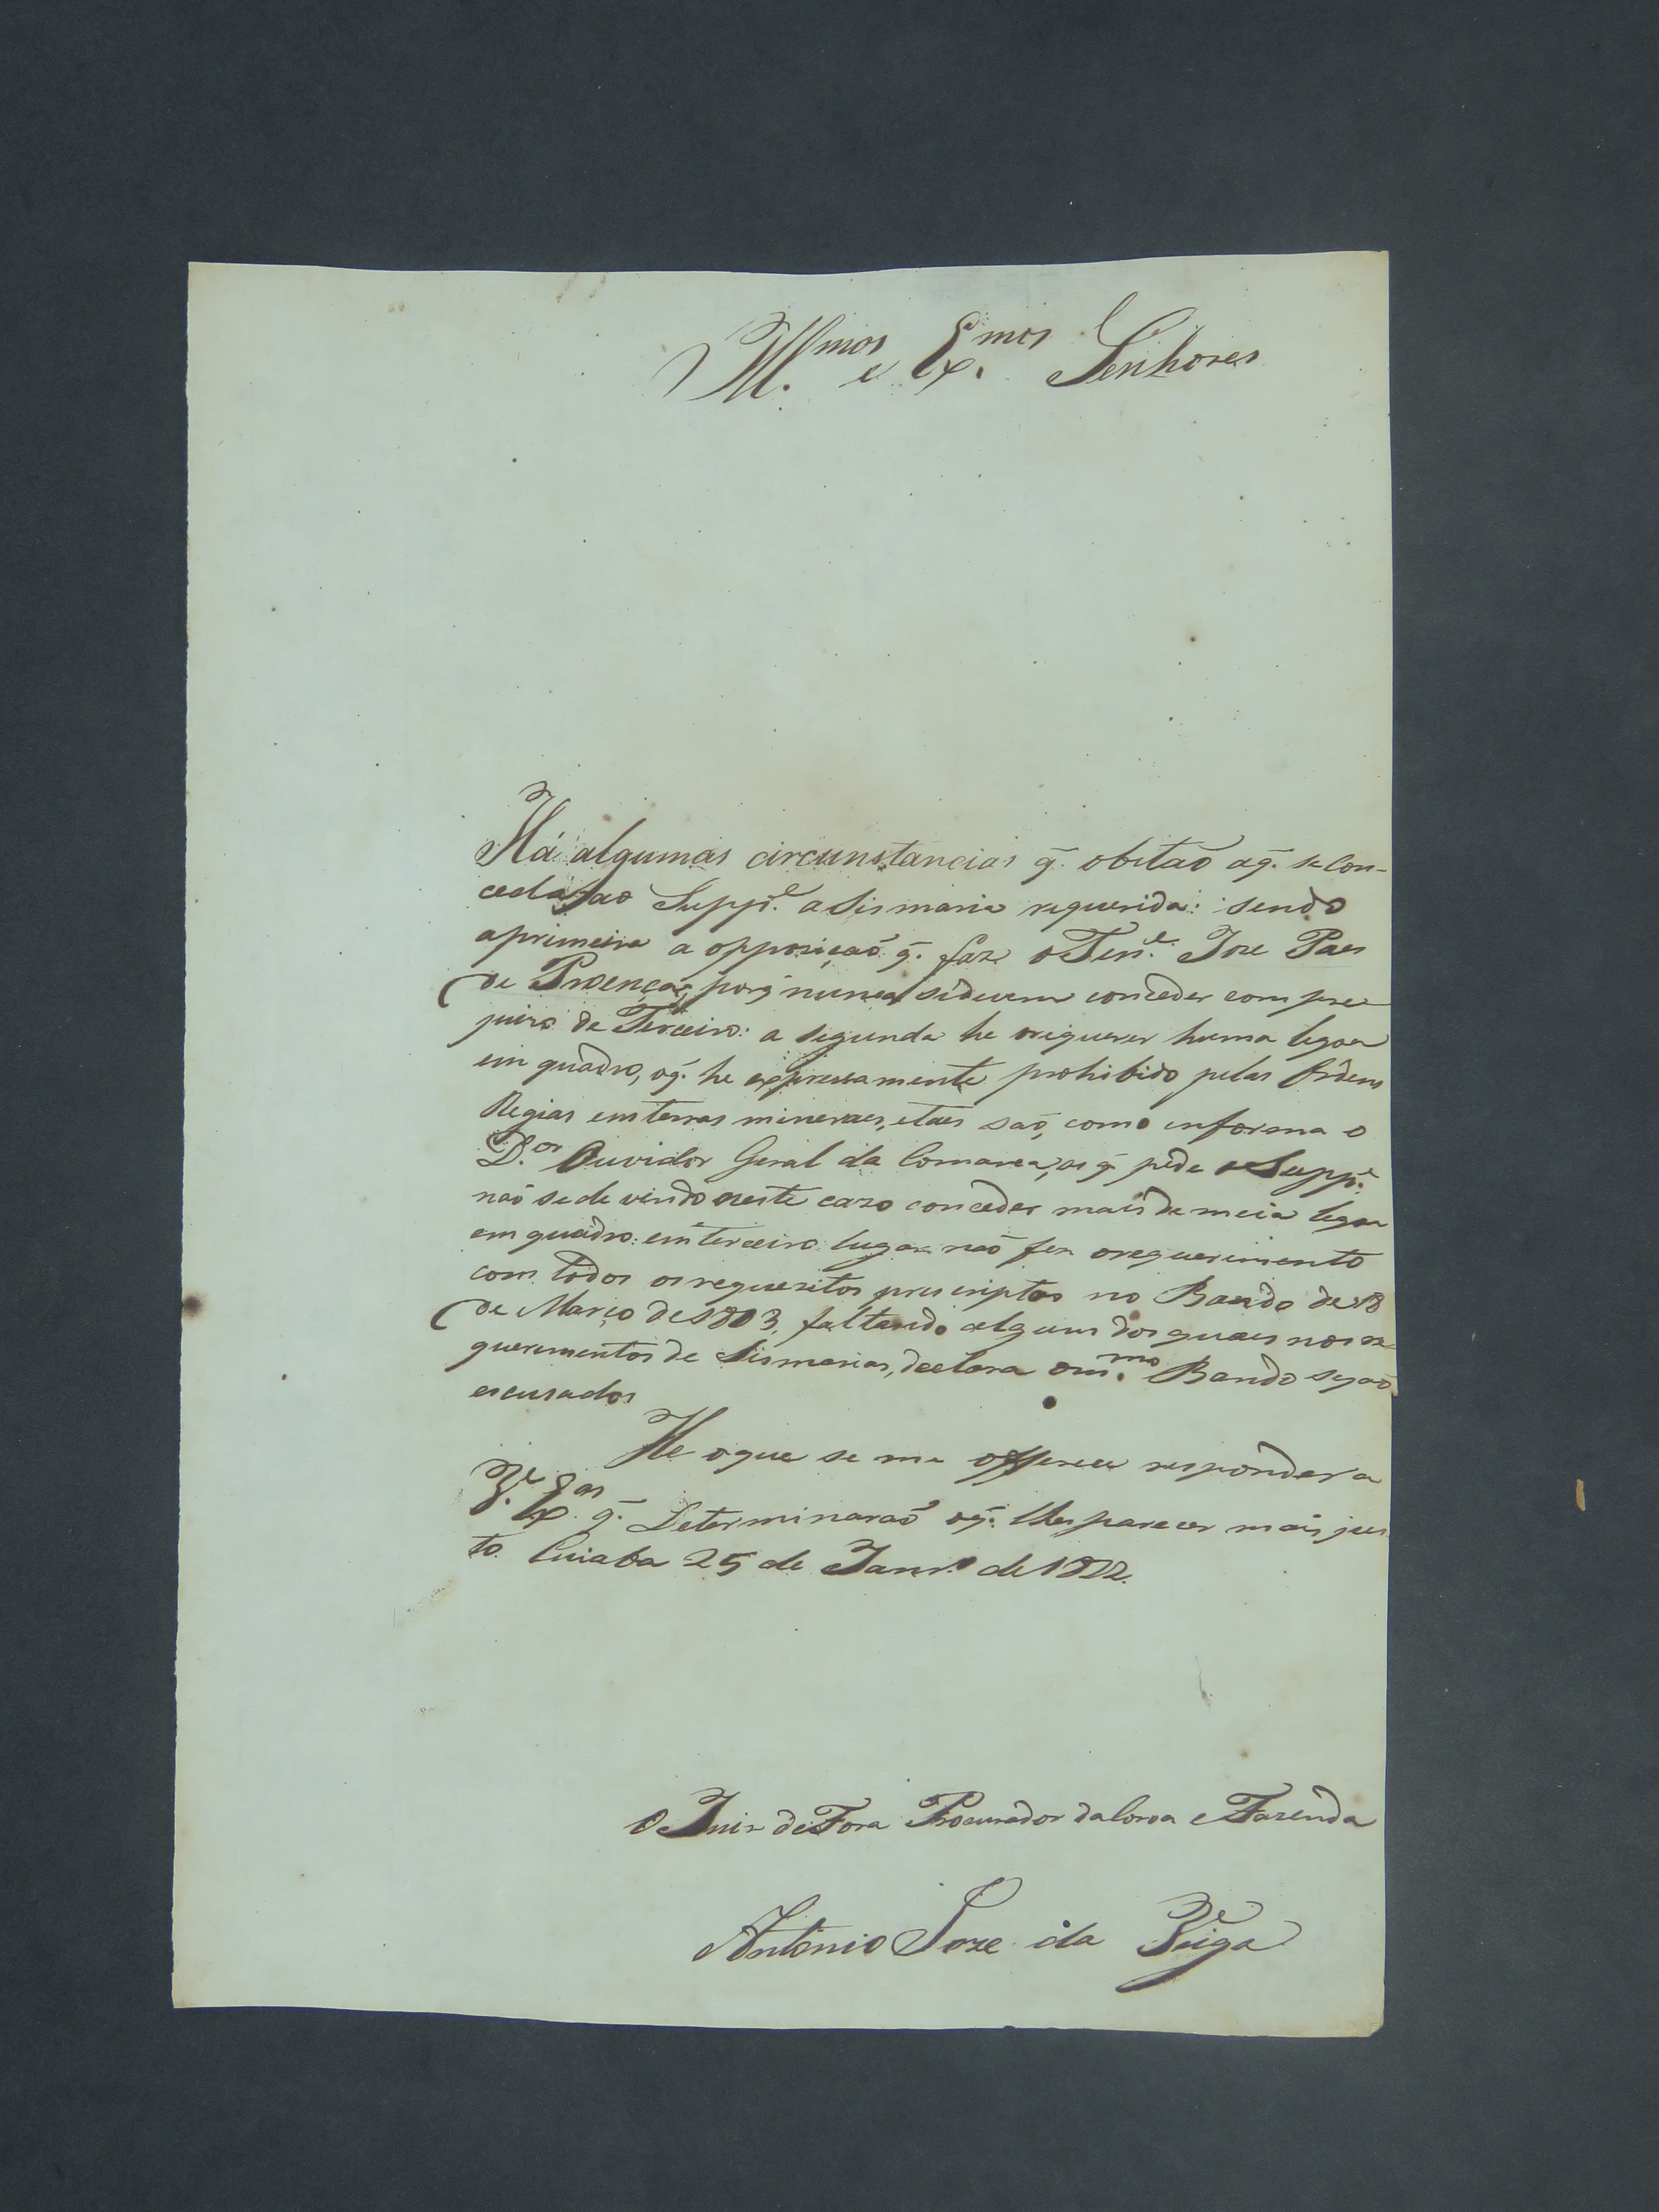 Ill.mos e Ex.mos Senhores
Há algumas circunstancias q̃. obstaõ aq̃. se Con-
ceda ao Supp.e a Sismaria requerida: sendo
aprimeira a opposiçaõ q̃. faz o Ten.e Joze Paes
de Proença, porq̃ nunca sedevem conceder com pre-
juizo de Terceiro: a segunda he orequerer huma legoa
em quadro, oq̃. he expressamente prohibido pelas Ordens
Regias em terras mineraes, etaes saõ, como informa o
D.or Ouvidor Geral da Comarca, as q̃ pede o Supp.e
naõ sedevendo neste cazo conceder mais de meia legoa
em quadro: em terceiro lugar naõ fez orequerimento
com todos os requezitos prescriptos no Bando de 18
de Março de 1803, faltando algum dos quaes nos re-
querimentos de Sismarias, declara om.mo Bando sejaõ
escusados
He oque se me offerece responder a
V. Ex.as q̃. Determinaraõ oq̃. lhes parecer mais jus
to. Cuiaba 25 de Janr.o de 1822.
O Juiz de Fora Procurador da Coroa e Fazenda
Antonio Joze da Veiga